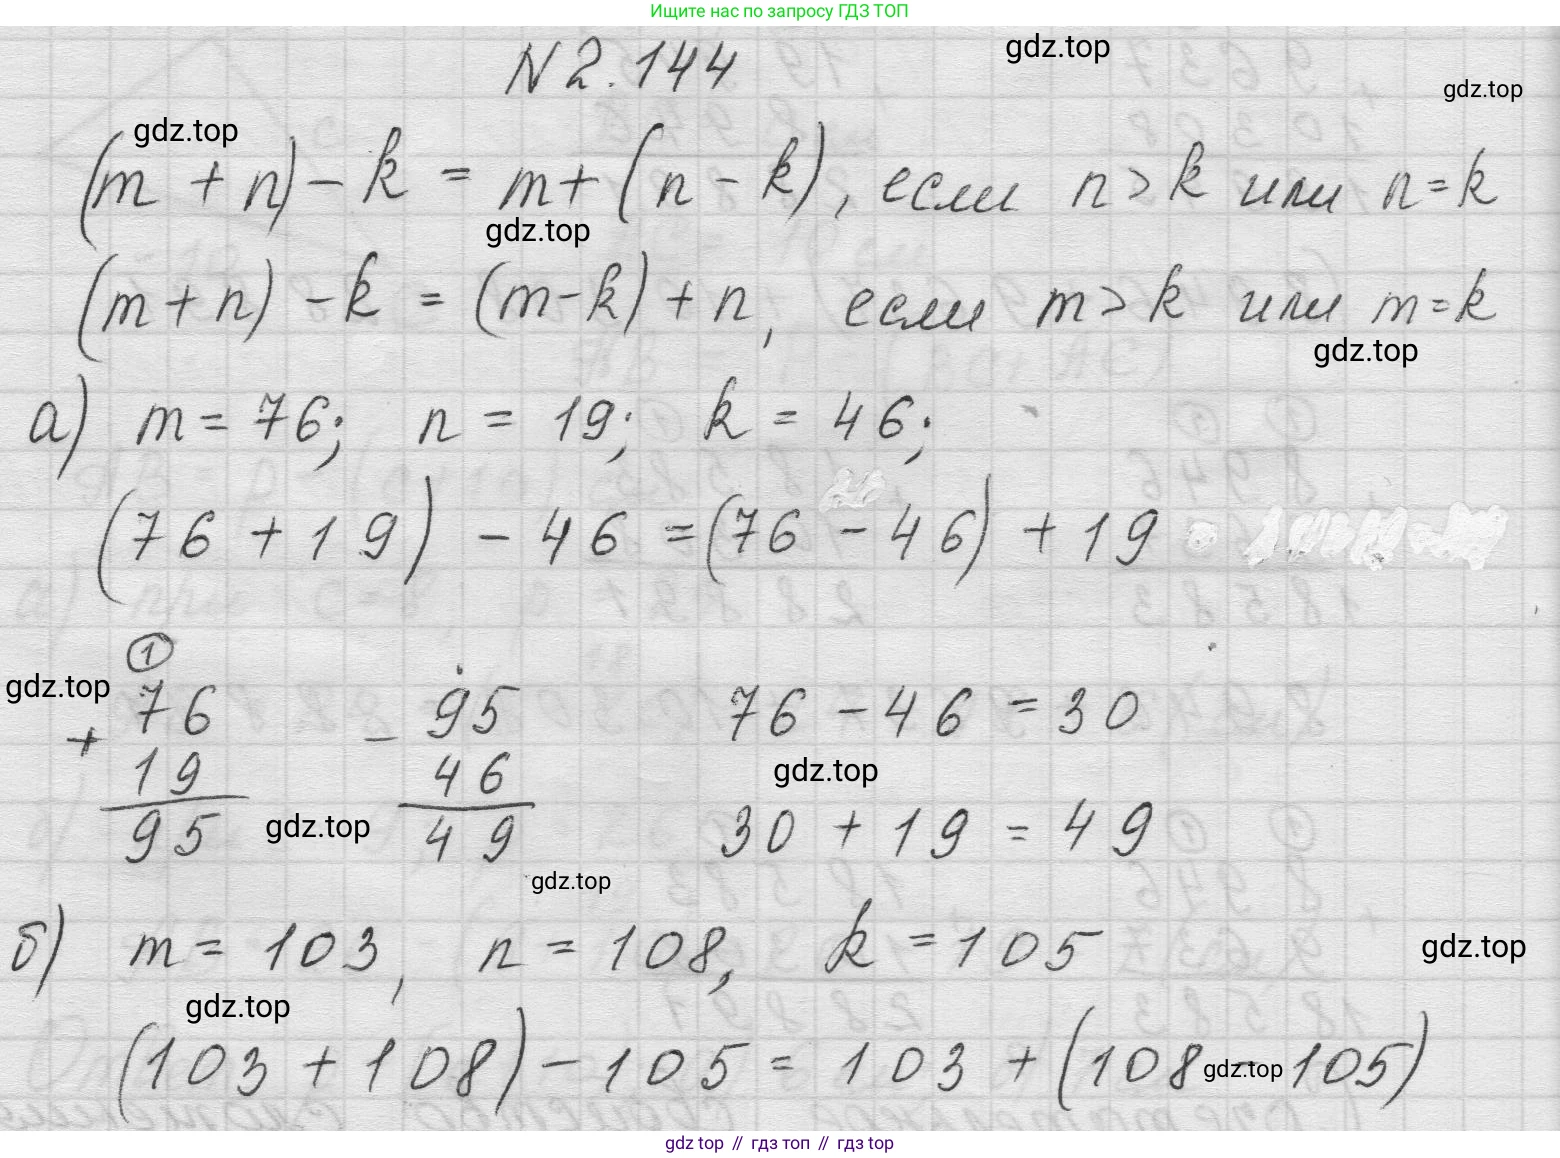 Ищите нас по запросу ГДЗ ТОП
N 2.144
gdz.top
gdz.top
gdz.top
(m + n) - k = m + (n - k), если n > k или n = k
gdz.top
(m + n) - k = (m - k) + n, если m > k или m = k
gdz.top
а) m = 76; n = 19; k = 46;
(76 + 19) - 46 = (76 - 46) + 19
1
gdz.top
+ 76 - 95 76 - 46 = 30
19 46
gdz.top
95 49 30 + 19 = 49
gdz.top
gdz.top
б) m = 103, n = 108, k = 105
gdz.top
gdz.top
(103 + 108) - 105 = 103 + (108 - 105)
gdz.top
gdz top // гдз топ // гдз top